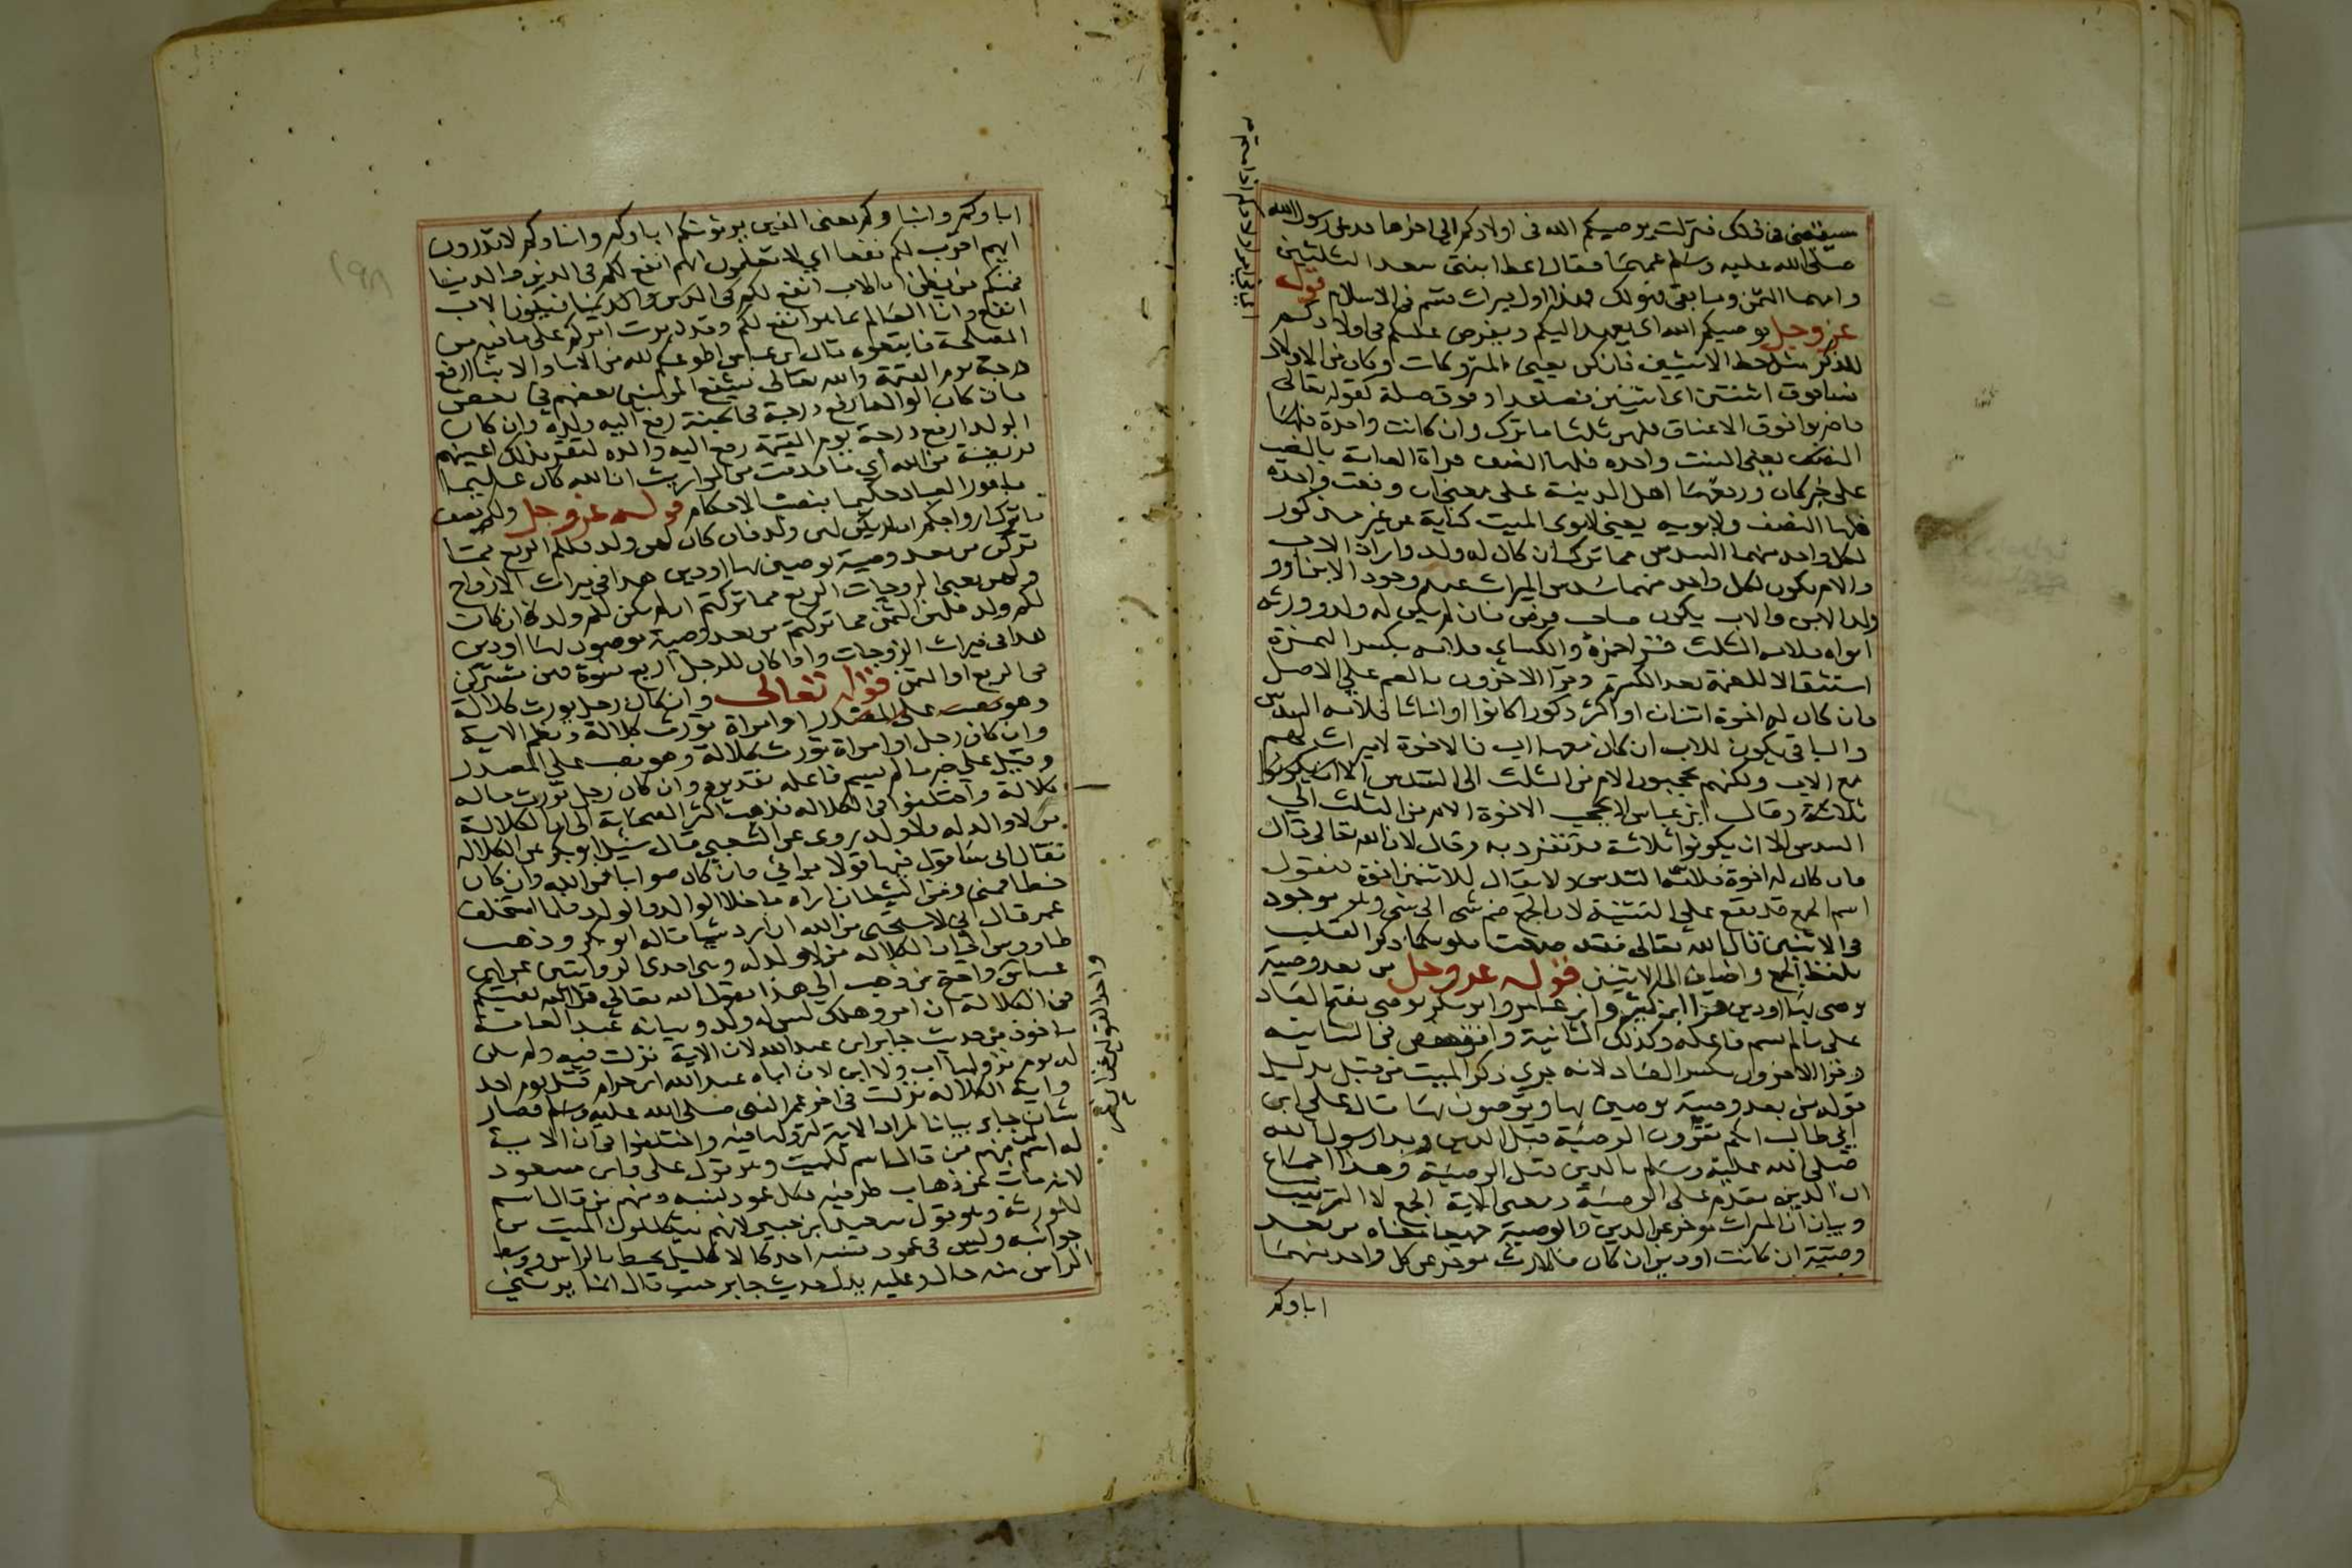 سيقضى فى ذلك فنزلت يوصيكم الله فى اولادكم الى اخرها فدعى رسول الله
صلى الله عليه وسلم عمهما فقال اعط ابنتى سعد الثلثين
وامهما الثمن وما بقى فهو لك فهذا اول ميراث قسم فى الاسلام قوله
عز وجل يوصيكم الله اى يعهد اليكم ويفرض عليكم فى اولادكم
للذكر مثل حظ الانثيين فان كن يعنى المتروكات وكان من الاولاد
نسا فوق اثنتين اى اثنتين فصاعدا وفوق صلة كقوله تعالى
فاضربوا فوق الاعناق فلهن ثلثا ما ترك وان كانت واحدة فلها
النصف يعنى البنت واحده فلها النصف قراة العامة بالنصب
على خبر كان ورفعها اهل المدينة على معنى ان وقعت واحده
فلها النصف ولابويه يعنى لابوى الميت كناية عن غير مذكور
لكل واحد منهما السدس مما ترك ان كان له ولد واراد ان الاب
والام يكون لكل واحد منهما سدس الميراث عند وجود الابن او
ولد الابن والاب يكون صاحب فرض فان لم يكن له ولد وورثه
ابواه فلامه الثلث قرا حمزة والكساى فلامه بكسر الهمزة
استثقالا للضمة بعد الكسرة وقرا الاخرون بالضم على الاصل
فان كان له اخوة اثنان او اكثر ذكورا كانوا او اناثا فلامه السدس
والباقى يكون للاب ان كان معها اب فالاخوة لا ميراث لهم
مع الاب ولكنهم يحجبون الام من الثلث الى السدس الا ان يكونوا
ثلاثة وقال ابن عباس لا يحجب الاخوة الام من الثلث الى
السدس الا ان يكونوا ثلاثة قد تفرد به وقال لان الله تعالى قال
فان كان له اخوة فلامه السدس ولا يقال للاثنين اخوة فنقول
اسم الجمع قد يقع على التثنية لان الجمع ضم شى الى شى وهو موجود
فى الاثنين قال الله تعالى فقد صغت قلوبكما ذكر القلب
بلفظ الجمع واضافه الى الاثنين قوله عز وجل من بعد وصية
يوصى بها او دين قرا ابن كثير وابن عامر وابو بكر يوصى بفتح الصاد
على ما لم يسم فاعله وكذلك الثانية وافق حفص فى الثانيه
وقرا الاخرون بكسر الصاد لانه جرى ذكر الميت من قبل بدليل
قوله من بعد وصية يوصين بها وتوصون بها قال على ابن
ابى طالب انكم تقرون الوصية قبل الدين وبدا رسول الله
صلى الله عليه وسلم بالدين قبل الوصية وهذا اجماع
ان الدين مقدم على الوصية ومعنى الاية الجمع لا الترتيب
وبيان ان الميراث موخر عن الدين والوصية جميعا معناه من بعد
وصية ان كانت او دين ان كان فالارث موخر عن كل واحد منهما
اباوكم
اباوكم وابناوكم يعنى الذين يرثونكم اباوكم وابناوكم لا تدرون
ايهم اقرب لكم نفعا اى لا تعلمون ايهم انفع لكم فى الدين والدنيا
فمنكم من يظن ان الاب انفع لكم فى الدين والدنيا فيكون الاب
انفع وانا العالم بما هو انفع لكم وقد دبرت امركم على ما فيه من
المصلحة فاتبعوه قال ابن عباس اطوعكم لله من الابا والابنا ارفع
درجة يوم القيمة والله تعالى يشفع المومنين بعضهم فى بعض
فان كان الوالد ارفع درجة فى الجنة رفع اليه ولده وان كان
الولد ارفع درجة يوم القيمة رفع اليه والده لتقر بذلك اعينهم
فريضة من الله اى ما قدمت من المواريث ان الله كان عليما
بامور العباد حكيما بنصب الاحكام قوله عز وجل ولكم نصف
ما ترك ازواجكم ان لم يكن لهن ولد فان كان لهن ولد فلكم الربع مما
تركن من بعد وصية يوصين بها او دين هذا فى ميراث الازواج
ولهن يعنى الزوجات الربع مما تركتم ان لم يكن لكم ولد فان كان
لكم ولد فلهن الثمن مما تركتم من بعد وصية توصون بها او دين
هذا فى ميراث الزوجات واذا كان للرجل اربع نسوة فهن مشتركن
فى الربع او الثمن قوله تعالى وان كان رجل يورث كلالة
وهو نصب على المصدر او امراة تورث كلالة ونظم الاية
وان كان رجل او امراة تورث كلالة وهو نصب على المصدر
وقيل على خبر ما لم يسم فاعله تقديره وان كان رجل يورث ماله
كلالة واختلفوا فى الكلاله فذهب اكثر الصحابة الى ان الكلالة
من لا والد له ولا ولد وروى عن الشعبى قال سئل ابو بكر عن الكلاله
فقال انى ساقول فيها قولا برائى فان كان صوابا فمن الله وان كان
خطا فمنى ومن الشيطان اراه ما خلا الوالد والولد فلما استخلف
عمر قال انى لاستحى من الله ان ارد شيا قاله ابو بكر وذهب
طاووس الى ان الكلاله من لا ولد له وهى احدى الروايتين عن ابن
عباس واحتج من ذهب الى هذا بقول الله تعالى قل الله يفتيكم
فى الكلالة ان امرو هلك ليس له ولد وبيانه عند العامة
ماخوذ من حديث جابر ابن عبد الله لان الاية نزلت فيه ولم يكن
له يوم نزولها اب ولا ابن لان اباه عبد الله ابن حرام قتل يوم احد
واية الكلالة نزلت فى اخر عمر النبى صلى الله عليه وسلم فصار
شان جابر بيانا لمراد الاية لنزولها فيه واختلفوا فى ان الاية
له اسم لمن منهم من قال اسم للميت وهو قول على وابن مسعود
لانه مات عن ذهاب طرفيه فكل عمود نسبه ومنهم من قال اسم
للورثه وهو قول سعيد ابن جبير لانهم يتكللون الميت من
جوانبه وليس فى عمود نسبه احد كالاكليل يحيط بالراس ووسط
الراس منه خال وعليه يدل حديث جابر حيث قال انما يرثنى